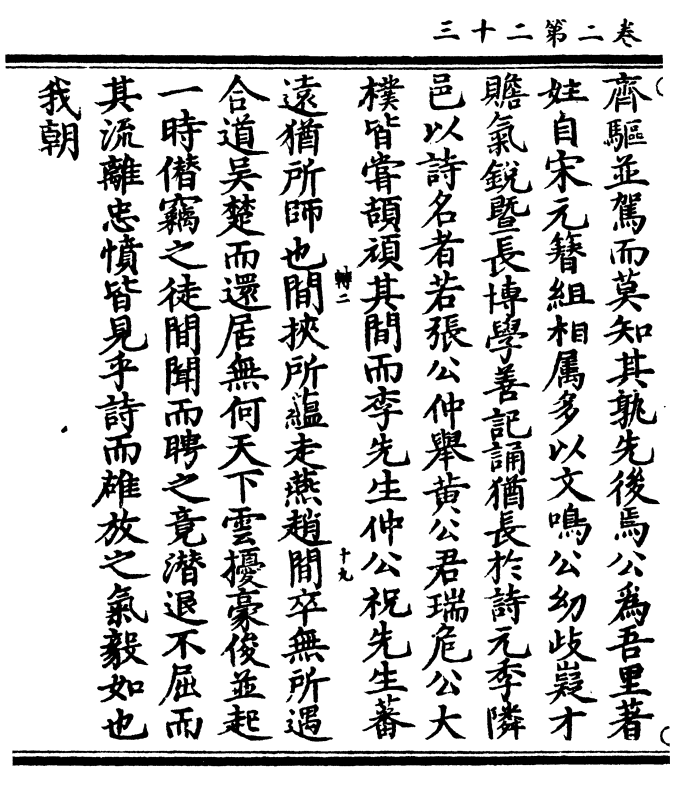 三十二第二卷
齊驅並駕而莫知其孰先後焉公爲吾里著
姓自宋元簪組相属多以文鳴公幼歧嶷才
贍氣銳暨長博學善記誦猶長於詩元季隣
邑以詩名者若張公仲舉黄公君瑞危公大
樸皆甞頡頏其間而李先生仲公祝先生蕃
轉二
十九
遠猶所師也間挾所蘊走燕趙間卒無所遇
合道吴楚而還居無何天下雲擾豪俊並起
一時僭竊之徒間聞而聘之竟潜退不屈而
其流離忠憤皆見乎詩而雄放之氣毅如也
我朝